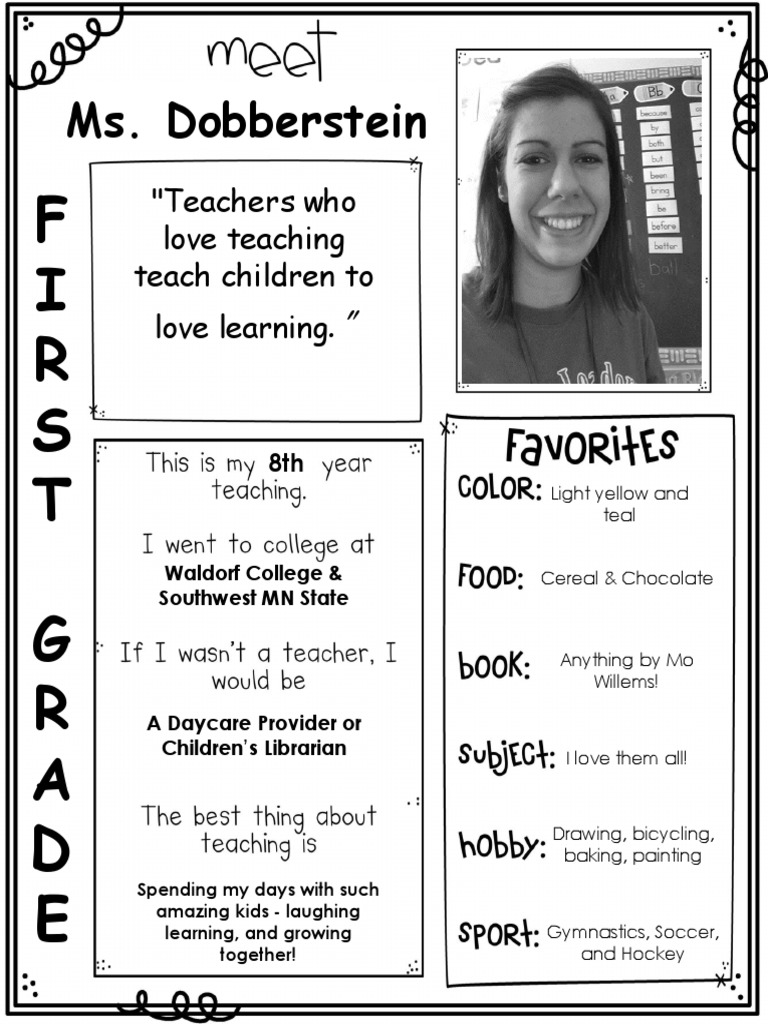 meet
Ms. Dobberstein
FIRST GRADE
"Teachers who
love teaching
teach children to
love learning. "
Bb
because
by
both
but
been
bring
be
before
better
ball
This is my 8th year
teaching.
I went to college at
Waldorf College &
Southwest MN State
If I wasn't a teacher, I
would be
A Daycare Provider or
Children's Librarian
The best thing about
teaching is
Spending my days with such
amazing kids - laughing
learning, and growing
together!
FAVORITES
COLOR: Light yellow and
teal
FOOD: Cereal & Chocolate
BOOK: Anything by Mo
Willems!
SUBJECT: I love them all!
HOBBY: Drawing, bicycling,
baking, painting
SPORT: Gymnastics, Soccer,
and Hockey